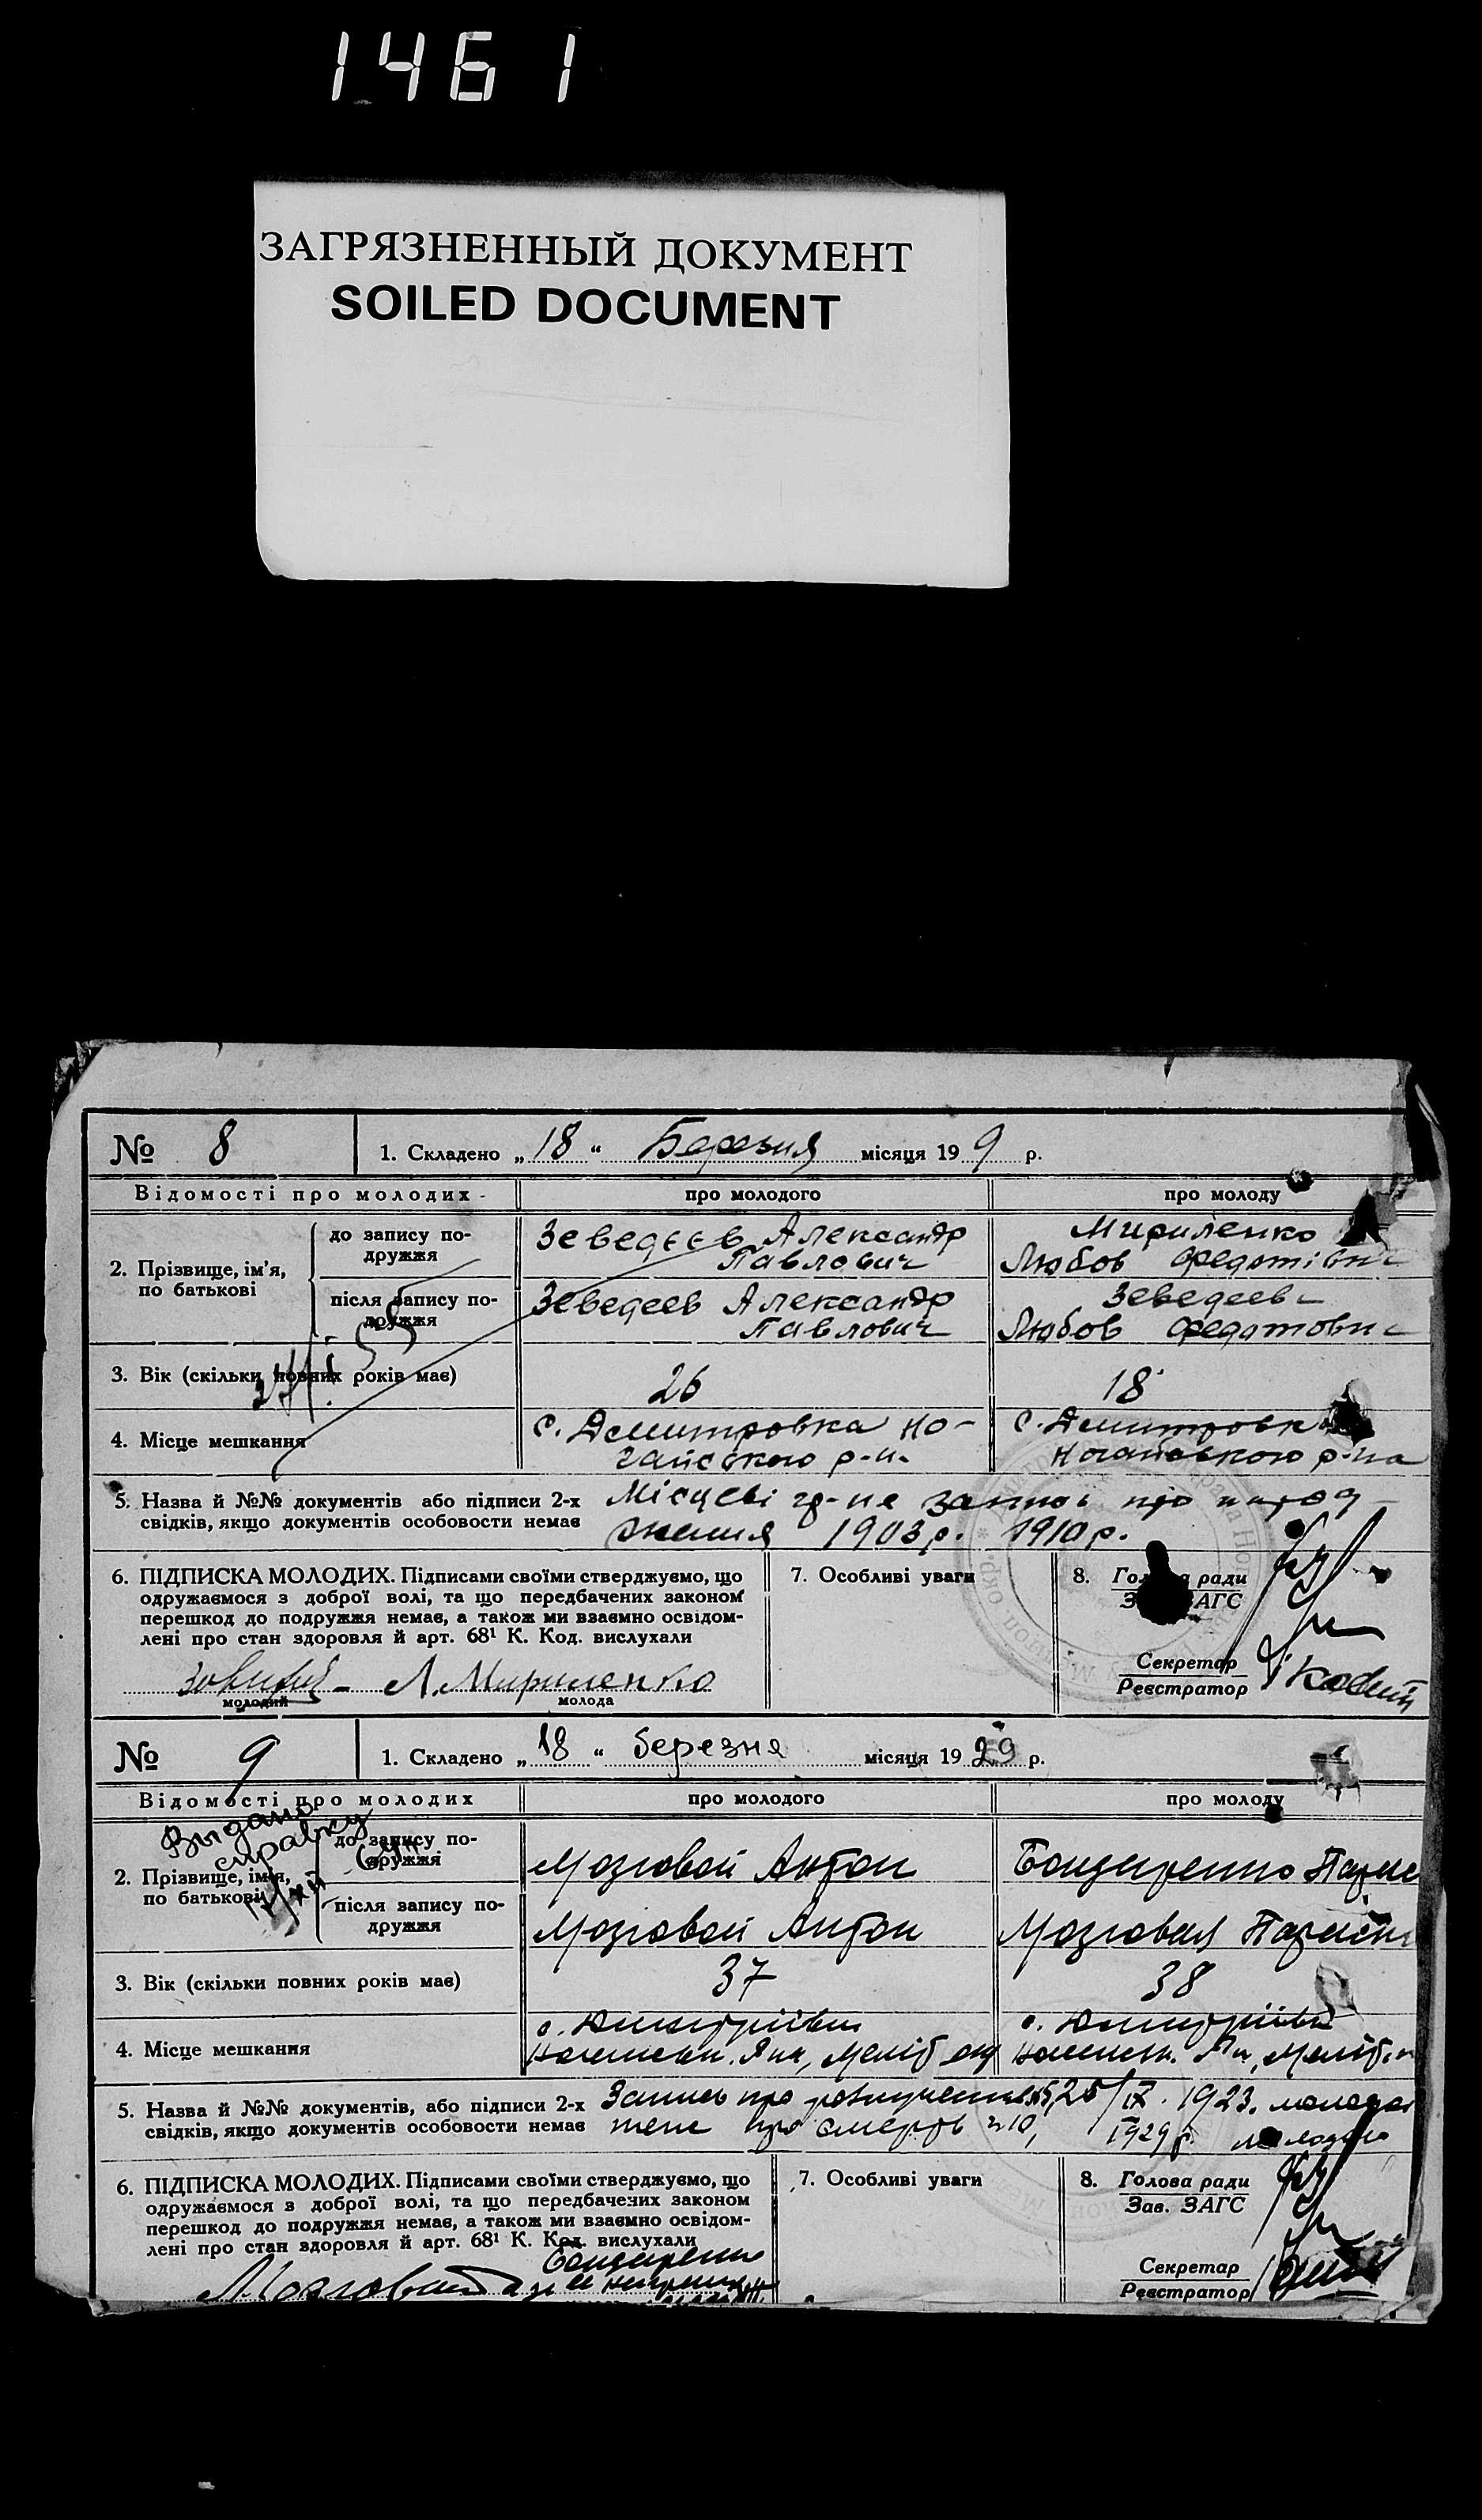 1461
ЗАГРЯЗНЕННЫЙ ДОКУМЕНТ
SOILED DOCUMENT
№ 8
1. Складено „18“ Березня місяця 19 9 р.
Відомості про молодих
про молодого
про молоду
2. Прізвище, ім'я,
по батькові
до запису по-
дружжя
Зеведєєв Александр
Павлович
Мириленко
Любов
після запису по-
дружжя
Зеведеев Александр
Павлович
Зеведеев
Любов
3. Вік (скільки повних років має)
26
18
4. Місце мешкання
с. Демитровка Но-
гайського р-н.
с. Демитровк
Ногайського р-на
5. Назва й №№ документів або підписи 2-х
свідків, якщо документів особовости немає
Місцеві гр-не про народ
ження 1903 р. 1910 р.
6. ПІДПИСКА МОЛОДИХ. Підписами своїми стверджуємо, що
одружаємося з доброї волі, та що передбачених законом
перешкод до подружжя немає, а також ми взаємно освідом-
лені про стан здоровля й арт. 68¹ К. Код. вислухали
Л. Мириленко
молодий
молода
7. Особливі уваги
8. Голова ради
ЗАГС
Секретар
Реєстратор
№ 9
1. Складено „18“ березня місяця 1929 р.
Відомості про молодих
про молодого
про молоду
Выдано
справку
2. Прізвище, ім'я,
по батькові
до запису по-
дружжя
Мозговой Антон
Бондаренко
після запису по-
дружжя
Мозговой Антон
Мозговая
3. Вік (скільки повних років має)
37
38
4. Місце мешкання
с. Дмитріївки
с. Дмитріївки
5. Назва й №№ документів, або підписи 2-х
свідків, якщо документів особовости немає
Запись про 25/IX. 1923.
про смерть 1929 р.
6. ПІДПИСКА МОЛОДИХ. Підписами своїми стверджуємо, що
одружаємося з доброї волі, та що передбачених законом
перешкод до подружжя немає, а також ми взаємно освідом-
лені про стан здоровля й арт. 68¹ К. Код. вислухали
Бондаренко
7. Особливі уваги
8. Голова ради
Зав. ЗАГС
Секретар
Реєстратор